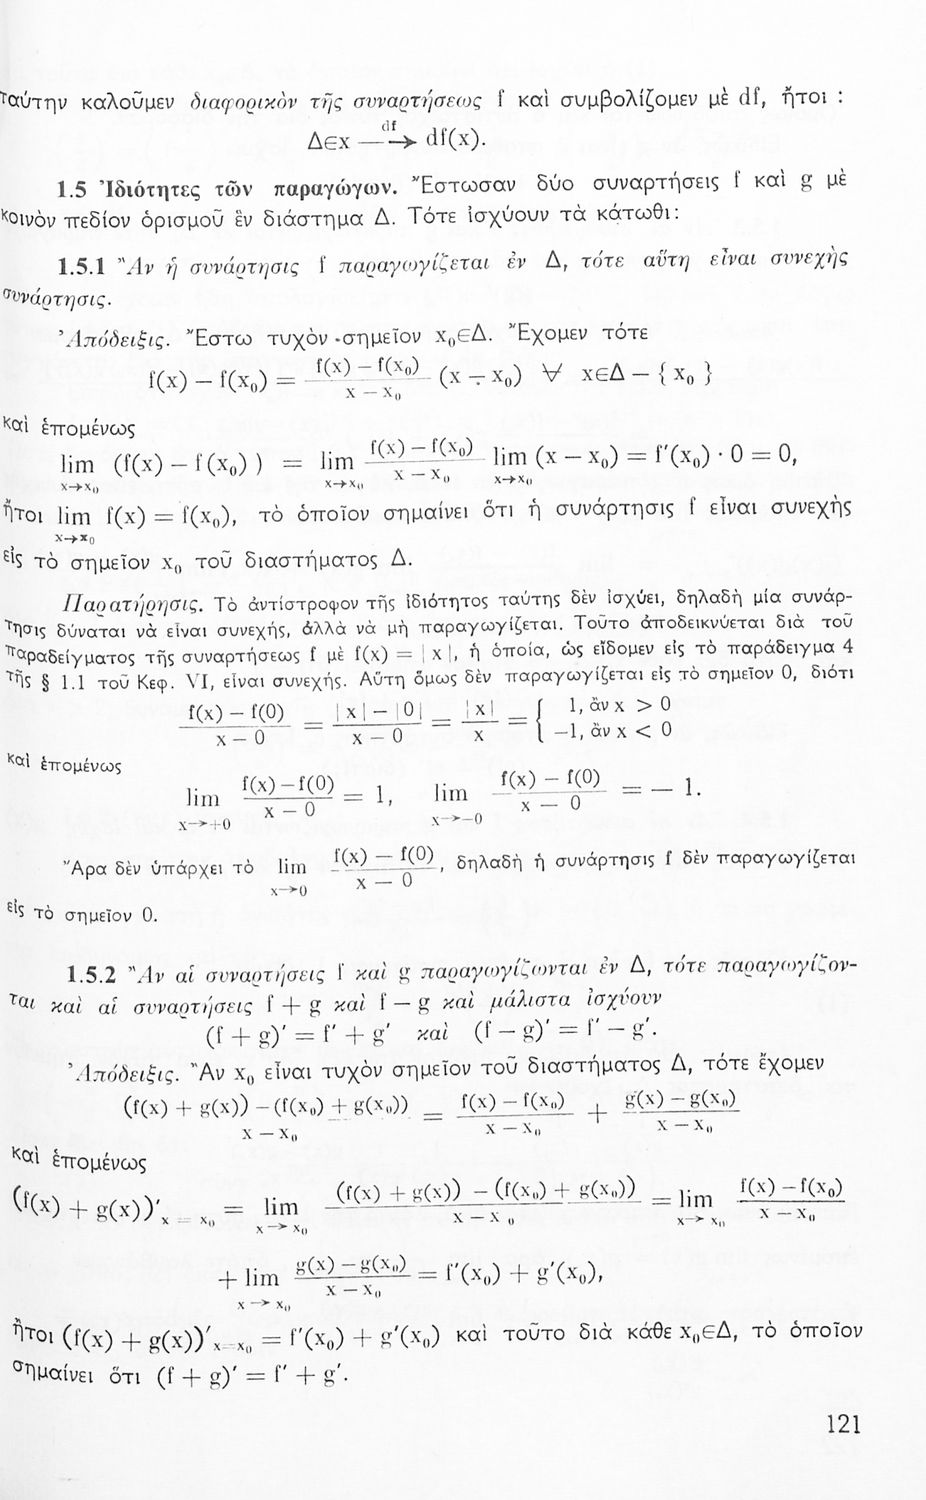 ταύτην καλοῦμεν διαφορικὸν τῆς συναρτήσεως f καὶ συμβολίζομεν μὲ df, ἤτοι :
Δ∈x —df→ df(x).
1.5 Ἰδιότητες τῶν παραγώγων. Ἔστωσαν δύο συναρτήσεις f καὶ g μὲ
κοινὸν πεδίον ὁρισμοῦ ἓν διάστημα Δ. Τότε ἰσχύουν τὰ κάτωθι:
1.5.1 Ἂν ἡ συνάρτησις f παραγωγίζεται ἐν Δ, τότε αὕτη εἶναι συνεχὴς
συνάρτησις.
Ἀπόδειξις. Ἔστω τυχὸν σημεῖον x₀∈Δ. Ἔχομεν τότε
f(x) – f(x₀) = (f(x) – f(x₀))/(x – x₀) (x – x₀) ∀ x∈Δ – { x₀ }
καὶ ἑπομένως
lim_{x→x₀} (f(x) – f(x₀) ) = lim_{x→x₀} (f(x) – f(x₀))/(x – x₀) lim_{x→x₀} (x – x₀) = f′(x₀) · 0 = 0,
ἤτοι lim_{x→x₀} f(x) = f(x₀), τὸ ὁποῖον σημαίνει ὅτι ἡ συνάρτησις f εἶναι συνεχὴς
εἰς τὸ σημεῖον x₀ τοῦ διαστήματος Δ.
Παρατήρησις. Τὸ ἀντίστροφον τῆς ἰδιότητος ταύτης δὲν ἰσχύει, δηλαδὴ μία συνάρ-
τησις δύναται νὰ εἶναι συνεχής, ἀλλὰ νὰ μὴ παραγωγίζεται. Τοῦτο ἀποδεικνύεται διὰ τοῦ
παραδείγματος τῆς συναρτήσεως f μὲ f(x) = | x |, ἡ ὁποία, ὡς εἴδομεν εἰς τὸ παράδειγμα 4
τῆς § 1.1 τοῦ Κεφ. VI, εἶναι συνεχής. Αὕτη ὅμως δὲν παραγωγίζεται εἰς τὸ σημεῖον 0, διότι
(f(x) – f(0))/(x – 0) = (| x | – | 0 |)/(x – 0) = | x |/x = { 1, ἂν x > 0
–1, ἂν x < 0
καὶ ἑπομένως
lim_{x→+0} (f(x)–f(0))/(x – 0) = 1, lim_{x→–0} (f(x) – f(0))/(x – 0) = – 1.
Ἄρα δὲν ὑπάρχει τὸ lim_{x→0} (f(x) – f(0))/(x – 0), δηλαδὴ ἡ συνάρτησις f δὲν παραγωγίζεται
εἰς τὸ σημεῖον 0.
1.5.2 Ἂν αἱ συναρτήσεις f καὶ g παραγωγίζωνται ἐν Δ, τότε παραγωγίζον-
ται καὶ αἱ συναρτήσεις f + g καὶ f – g καὶ μάλιστα ἰσχύουν
(f + g)′ = f′ + g′ καὶ (f – g)′ = f′ – g′.
Ἀπόδειξις. Ἂν x₀ εἶναι τυχὸν σημεῖον τοῦ διαστήματος Δ, τότε ἔχομεν
((f(x) + g(x)) – (f(x₀) + g(x₀)))/(x – x₀) = (f(x) – f(x₀))/(x – x₀) + (g(x) – g(x₀))/(x – x₀)
καὶ ἑπομένως
(f(x) + g(x))′_{x = x₀} = lim_{x→x₀} ((f(x) + g(x)) – (f(x₀) + g(x₀)))/(x – x₀) = lim_{x→x₀} (f(x) – f(x₀))/(x – x₀)
+ lim_{x→x₀} (g(x) – g(x₀))/(x – x₀) = f′(x₀) + g′(x₀),
ἤτοι (f(x) + g(x))′_{x=x₀} = f′(x₀) + g′(x₀) καὶ τοῦτο διὰ κάθε x₀∈Δ, τὸ ὁποῖον
σημαίνει ὅτι (f + g)′ = f′ + g′.
121